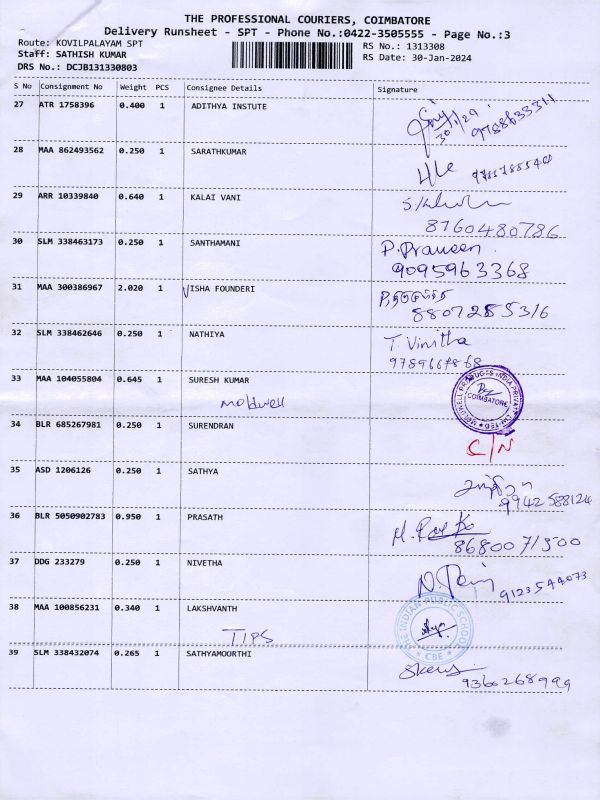 THE PROFESSIONAL COURIERS, COIMBATORE
Delivery Runsheet - SPT - Phone No.:0422-3505555 - Page No.:3
Route: KOVILPALAYAM SPT
RS No.: 1313308
Staff: SATHISH KUMAR
RS Date: 30-Jan-2024
DRS No.: DCJB131330803
S No Consignment No Weight PCS Consignee Details Signature
27 ATR 1758396 0.400 1 ADITHYA INSTUTE
30/1/24
9788633311
28 MAA 862493562 0.250 1 SARATHKUMAR
29 ARR 10339840 0.640 1 KALAI VANI
8760480786
30 SLM 338463173 0.250 1 SANTHAMANI P. Praveen
9095963368
31 MAA 300386967 2.020 1 VISHA FOUNDERI
8807285316
32 SLM 338462646 0.250 1 NATHIYA T. Vinitha
9789667868
33 MAA 104055804 0.645 1 SURESH KUMAR
Moldwell
MOLDWELL PRODUCES INDIA PRIVATE LIMITED
COIMBATORE
34 BLR 685267981 0.250 1 SURENDRAN C/N
35 ASD 1206126 0.250 1 SATHYA
9942588124
36 BLR 5050902783 0.950 1 PRASATH
8680071500
37 DDG 233279 0.250 1 NIVETHA
9123544073
38 MAA 100856231 0.340 1 LAKSHVANTH
TIPS
THE INDIAN PUBLIC SCHOOL
CBE
39 SLM 338432074 0.265 1 SATHYAMOORTHI
9360268999